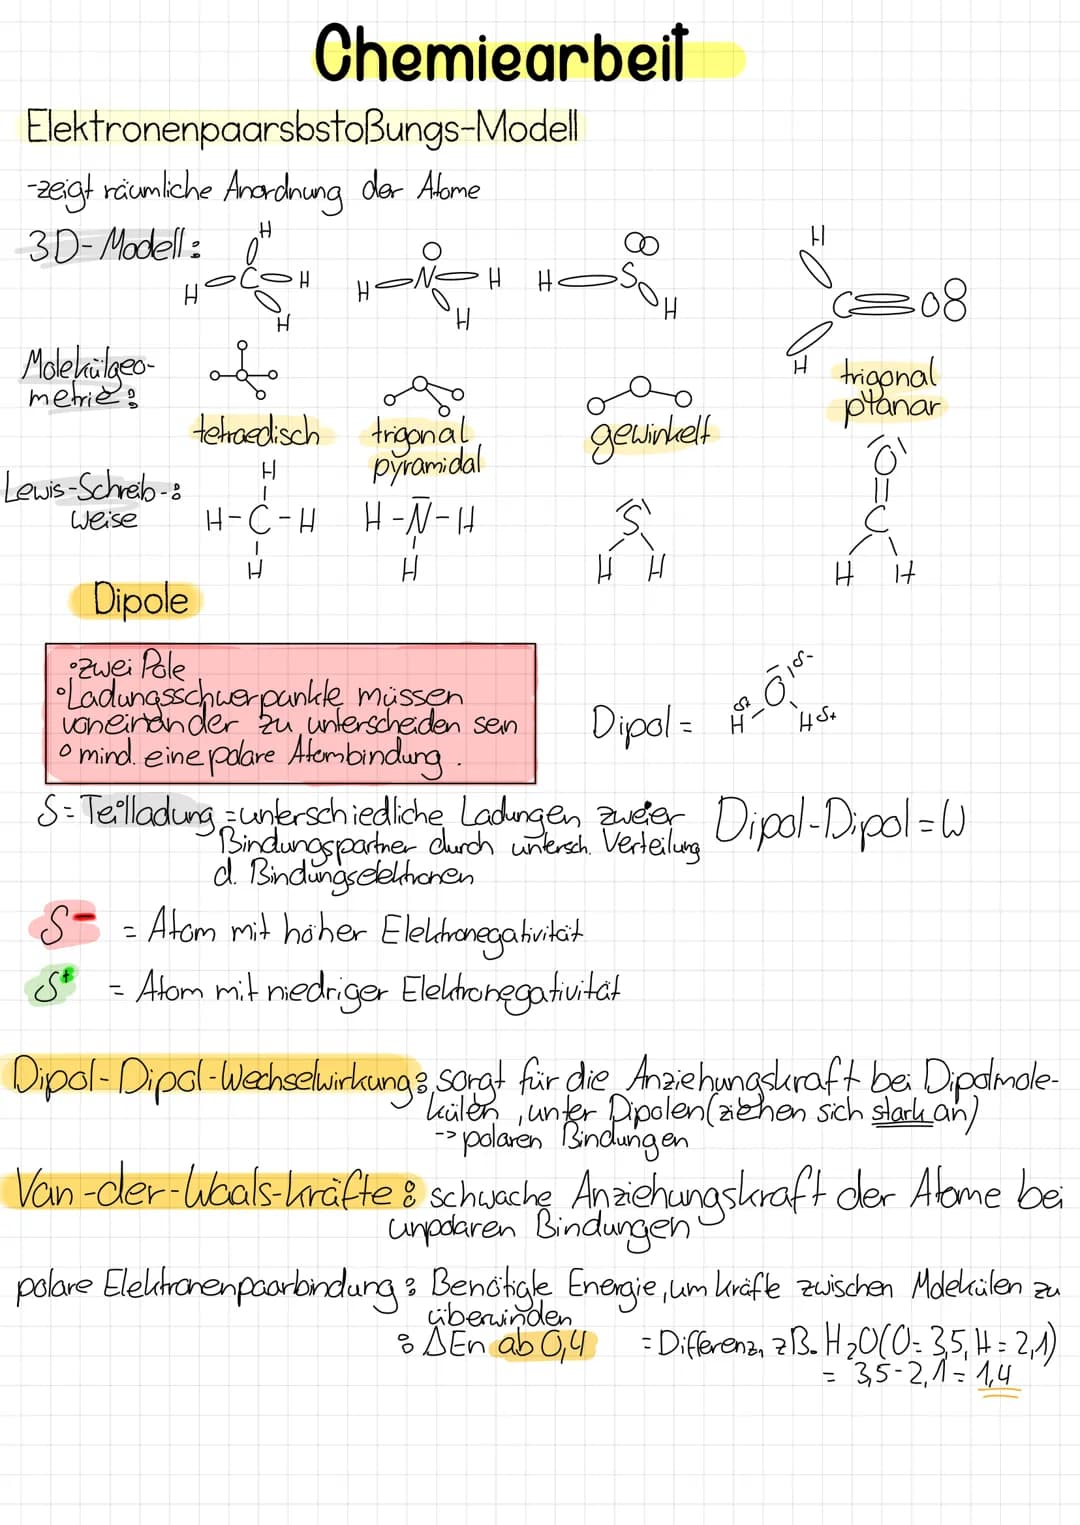 Chemiearbeit
Elektronenpaarsbstoßungs-Modell
-zeigt räumliche Anordnung der Atome
3D-Modell:
H H C H H
H N H H
H S H
H C O H
Molekülgeo-
metrie:
tetraedisch
trigonal
pyramidal
gewinkelt
trigonal
planar
Lewis-Schreib-:
weise
H
H-C-H
H
H-N-H
H
S
H H
O
C
H H
Dipole
•zwei Pole
•Ladungsschwerpunkte müssen
voneinander zu unterscheiden sein
• mind. eine polare Atombindung.
Dipol = H δ+ O δ- H δ+
δ=Teilladung =unterschiedliche Ladungen zweier
Bindungspartner durch untersch. Verteilung
d. Bindungselektronen
Dipol-Dipol=W
δ- = Atom mit hoher Elektronegativität
δ+ = Atom mit niedriger Elektronegativität
Dipol-Dipol-Wechselwirkung: sorgt für die Anziehungskraft bei Dipolmole-
külen, unter Dipolen(ziehen sich stark an)
-> polaren Bindungen
Van-der-Waals-kräfte: schwache Anziehungskraft der Atome bei
unpolaren Bindungen
polare Elektronenpaarbindung: Benötigte Energie, um kräfte zwischen Molekülen zu
überwinden
: ΔEn ab 0,4 =Differenz, zB. H₂O(O=3,5, H=2,1)
= 3,5-2,1=1,4